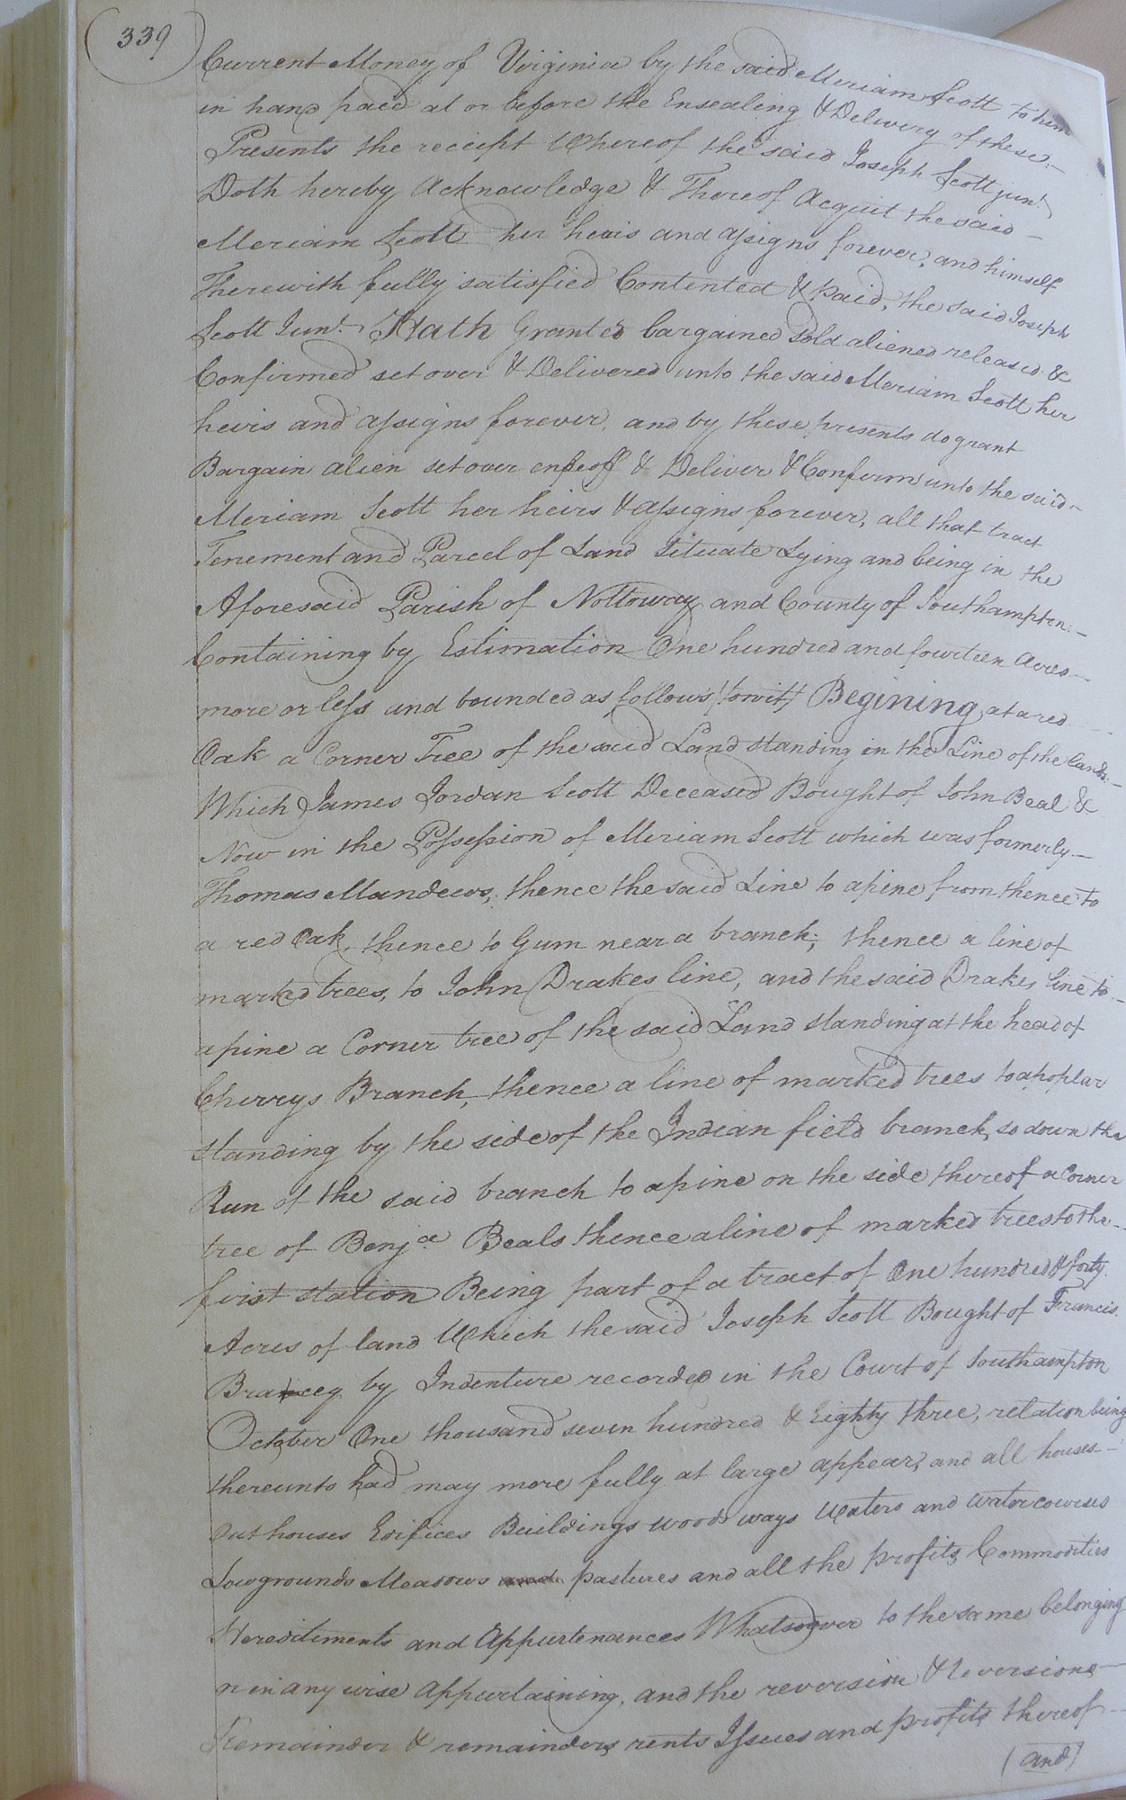 339
Current Money of Virginia by the said Meriam Scott to him
in hand paid at or before the Ensealing & Delivery of these
Presents the receipt Whereof the said Joseph Scott junr.
Doth hereby Acknowledge & Thereof Acquit the said
Meriam Scott her heirs and assigns forever, and himself
Therewith fully satisfied Contented & paid, the said Joseph
Scott Junr. Hath Granted bargained Sold aliened released &
Confirmed set over & Delivered unto the said Meriam Scott her
heirs and assigns forever, and by these presents do grant
Bargain alien set over enfeoff & Deliver & Confirm unto the said
Meriam Scott her heirs & assigns forever, all that tract
Tenement and Parcel of Land Situate Lying and being in the
Aforesaid Parish of Nottoway and County of Southampton
Containing by Estimation One hundred and fourteen Acres
more or less and bounded as follows (towit) Begining at a red
Oak a Corner Tree of the said Land standing in the Line of the Lands
Which James Jordan Scott Deceased Bought of John Beal &
Now in the Possession of Meriam Scott which was formerly
Thomas Mandews, thence the said Line to a pine from thence to
a red Oak, thence to Gum near a branch; thence a line of
marked trees, to John Drakes line, and the said Drakes line to
a pine a Corner tree of the said Land standing at the head of
Cherrys Branch, thence a line of marked trees to a poplar
standing by the side of the Indian field branch, so down the
Run of the said branch to a pine on the side thereof a Corner
tree of Benja Beals thence a line of marked trees to the
first station Being part of a tract of One hundred & forty
Acres of land Which the said Joseph Scott Bought of Francis
by Indenture recorded in the Court of Southampton
October One thousand seven hundred & Eighty three, relation being
thereunto had may more fully at large appear, and all houses
Outhouses Edifices Buildings woods ways Waters and Watercourses
Lowgrounds Meadows and pastures and all the profits Commodities
Herediments and Appurtenances Whatsoever to the same belonging
r in any wise Appurtaining, and the reversion & reversions
Remainder & remainders rents Issues and profits thereof
(and)